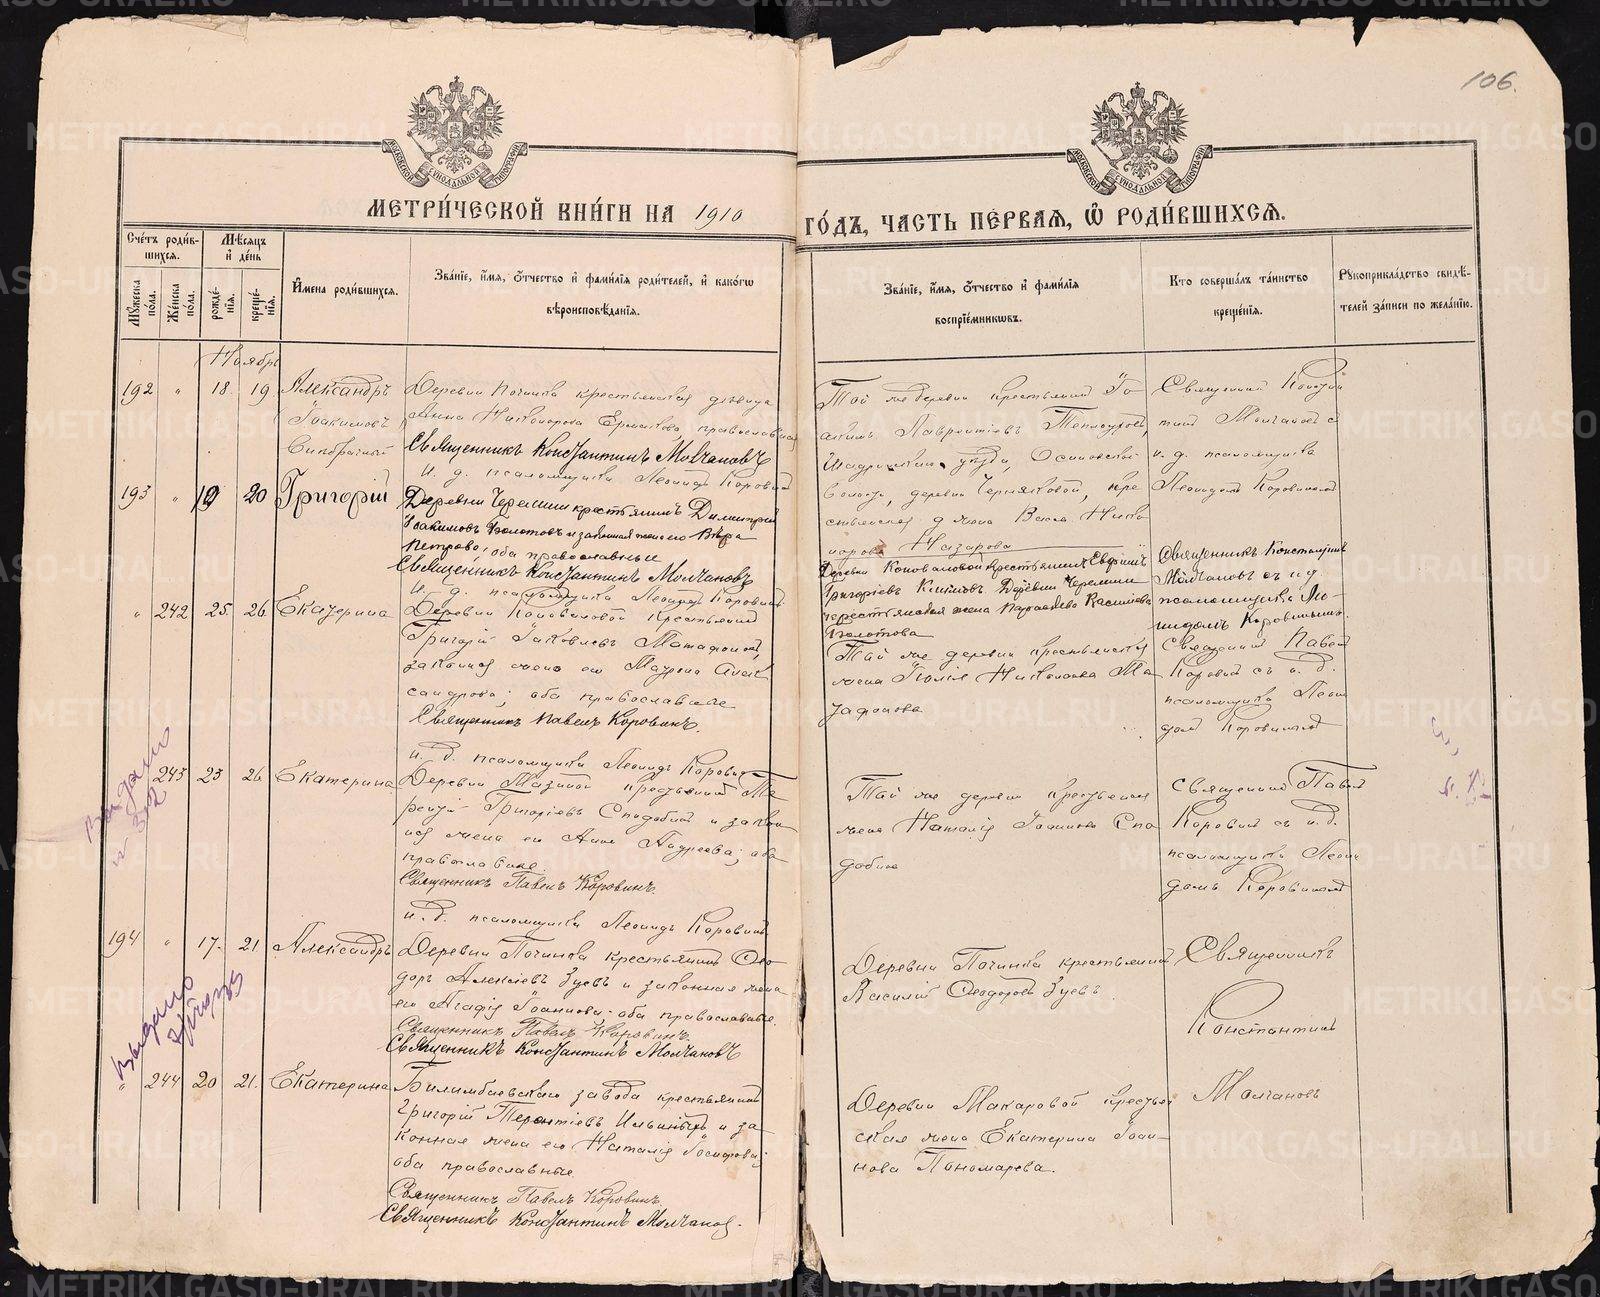 106.
МОСКОВСКОЙ СѴНОДАЛЬНОЙ ТИПОГРАФІИ
МОСКОВСКОЙ СѴНОДАЛЬНОЙ ТИПОГРАФІИ
МЕТРИ́ЧЕСКОЙ КНИ́ГИ НА 1910 ГО́ДЪ, ЧАСТЬ ПЕ́РВАЯ, Ѽ РОДИ́ВШИХСЯ.
Сче́тъ роди́вшихся.
Му́жеска по́ла.
Же́нска по́ла.
Мѣ́сяцъ и де́нь
рожде́нія.
креще́нія.
И́мена роди́вшихся.
Зва́ніе, и́мя, о́тчество и фами́лія роди́телей, и како́гѡ
вѣроисповѣ́данія.
Зва́ніе, и́мя, о́тчество и фами́лія
воспріе́мникѡвъ.
Кто соверша́лъ та́инство
креще́нія.
Рукоприкла́дство свидѣ́-
телей за́писи по жела́нію.
Ноябрь
192 " 18. 19. Александръ
Іоакимовъ
Деревни Починка крестьянская дѣвица
Анна Никонорова Ермакова, православная
Священникъ Константинъ Молчановъ
и. д. псаломщика Леонидъ Коровинъ
Той же деревни крестьянинъ Іо-
акимъ Лаврентіевъ
Шадринскаго уѣзда, Осиновской
волости, деревни Черняковой, кре-
стьянская жена Васса Нико-
норова Назарова
Священникъ Констан
тинъ Молчановъ с
и. д. псаломщика
Леонидомъ Коровинымъ
193 " 19 20 Григорій
Деревни Черемши крестьянинъ Димитрій
Іоакимовъ Болотовъ и законная жена его Вѣра
Петрова, оба православные
Священникъ Константинъ Молчановъ
и. д. псаломщика Леонидъ Коровинъ
Деревни Коноваловой крестьянинъ Евфимій
Григоріевъ Климовъ Деревни Черемши
крестьянская жена Параскева Василіева
Болотова
Священникъ Константинъ
Молчановъ съ и д
псаломщика Ле-
нидомъ Коровинымъ.
" 242 25. 26. Екатерина
Деревни Коноваловой крестьянинъ
Григорій Іаковлевъ Матафоновъ,
законная жена его Мавра Алек
сандрова; оба православные
Священникъ Павелъ Коровинъ.
и. д. псаломщика Леонидъ Коровинъ
Той же деревни крестьянская
жена Юлія Николаева Ма
тафонова
Священникъ Павелъ
Коровинъ съ и. д.
псаломщика Леони
домъ Коровинымъ
Выдано
№ 302
243 23 26 Екатерина
Деревни Мазиной крестьянинъ Те
рентій Григоріевъ Сподобинъ и закон
ная жена его Анна Андреева; оба
православные.
Священникъ Павелъ Коровинъ.
и. д. псаломщика Леонидъ Коровинъ.
Той же деревни крестьянская
жена Наталія Іоаннова Спо
добина
Священникъ Павелъ
Коровинъ съ и. д.
псаломщика Леони
домъ Коровинымъ
194 " 17. 21 Александръ
Деревни Починка крестьянинъ Ѳео-
доръ Алексіевъ Зуевъ и законная жена
его Агафія Іоаннова. оба православные.
Священникъ Павелъ Коровинъ.
Священникъ Константинъ Молчановъ
Деревни Починка крестьянинъ
Василій Ѳеодоровъ Зуевъ.
Священникъ
Константинъ
Выдано
" 244 20 21. Екатерина
Билимбаевскаго завода крестьянинъ
Григорій Терентіевъ Ильиныхъ и за-
конная жена его Наталія
оба православные.
Священникъ Павелъ Коровинъ
Священникъ Константинъ Молчановъ.
Деревни Макаровой крестьян
ская жена Екатерина Іоан-
нова Пономарева.
Молчановъ
METRIKI.GASO-URAL.RU